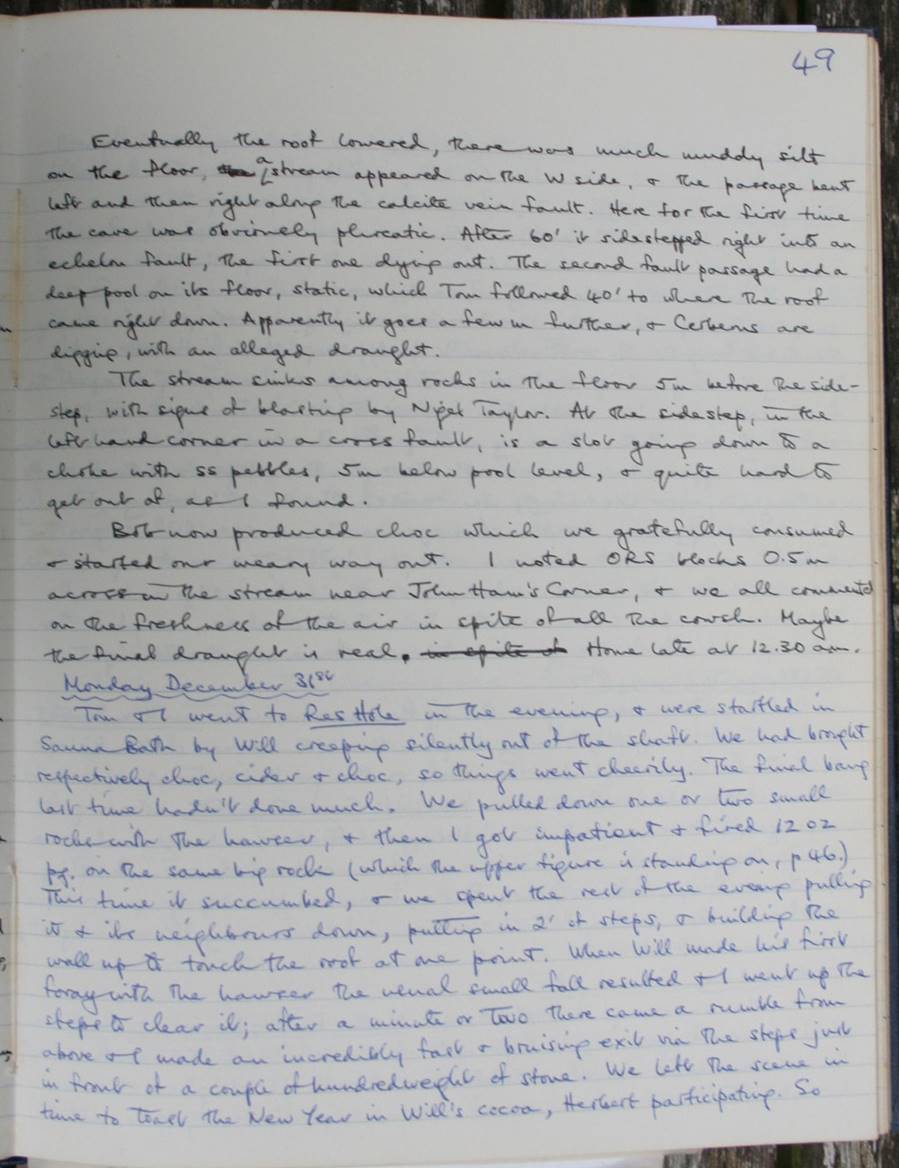 49
Eventually the roof lowered, there was much muddy silt
on the floor, a stream appeared on the W side, & the passage bent
left and then right along the calcite vein fault. Here for the first time
the cave was obviously phreatic. After 60' it sidestepped right into an
echelon fault, the first one dying out. The second fault passage had a
deep pool on its floor, static, which Tom followed 40' to where the roof
came right down. Apparently it goes a few m further, & Cerberus are
digging, with an alleged draught.
The stream sinks among rocks in the floor 5m before the side-
step, with signs of blasting by Nigel Taylor. At the sidestep, in the
left hand corner in a cross fault, is a slot going down to a
choke with ss pebbles, 5m below pool level, & quite hard to
get out of, as I found.
Bob now produced choc which we gratefully consumed
& started our weary way out. I noted ORS blocks 0.5m
across in the stream near John Ham's Corner, & we all commented
on the freshness of the air in spite of all the cowsh. Maybe
the final draught is real. in spite of Home late at 12.30 am.
Monday December 31st
Tom & I went to Res Hole in the evening, & were startled in
Sauna Bath by Will creeping silently out of the shaft. We had brought
respectively choc, cider & choc, so things went cheerily. The final bang
last time hadn't done much. We pulled down one or two small
rocks with the hawser, & then I got impatient & fired 12 oz
pg. on the same big rock (which the upper figure is standing on, p 46.)
This time it succumbed, & we spent the rest of the evening pulling
it & its neighbours down, putting in 2' of steps, & building the
wall up to touch the roof at one point. When Will made his first
foray with the hawser the usual small fall resulted & I went up the
steps to clear it; after a minute or two there came a rumble from
above & I made an incredibly fast & bruising exit via the steps just
in front of a couple of hundredweight of stone. We left the scene in
time to toast the New Year in Will's cocoa, Herbert participating. So